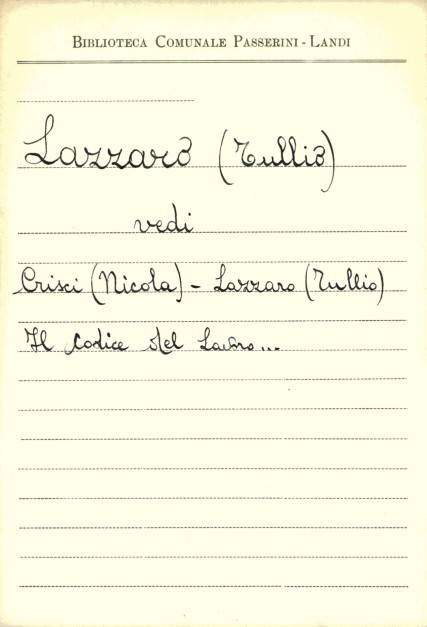 BIBLIOTECA COMUNALE PASSERINI - LANDI
Lazzaro (Tullio)
vedi
Crisci (Nicola) - Lazzaro (Tullio)
Il Codice del Lavoro...